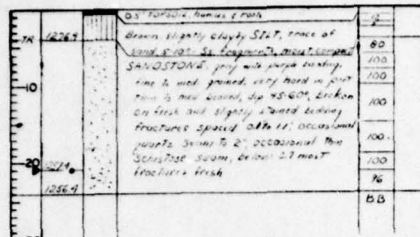 0.5' TOPSOIL, humus & roots
Brown slightly clayey SILT, trace of
sand, 5-10% SS. fragments, moist, compact
SANDSTONE: gray with purple banding,
fine to med. grained, very hard in part
thin to med bedded, dip 45-60°, broken
on fresh and slightly stained bedding
fractures spaced to 1', occasional
quartz seam to 2", occasional thin
Schistose seam, below 27 most
fractures fresh
TR
10
20
1256.9
80
100
100
100
100
100
96